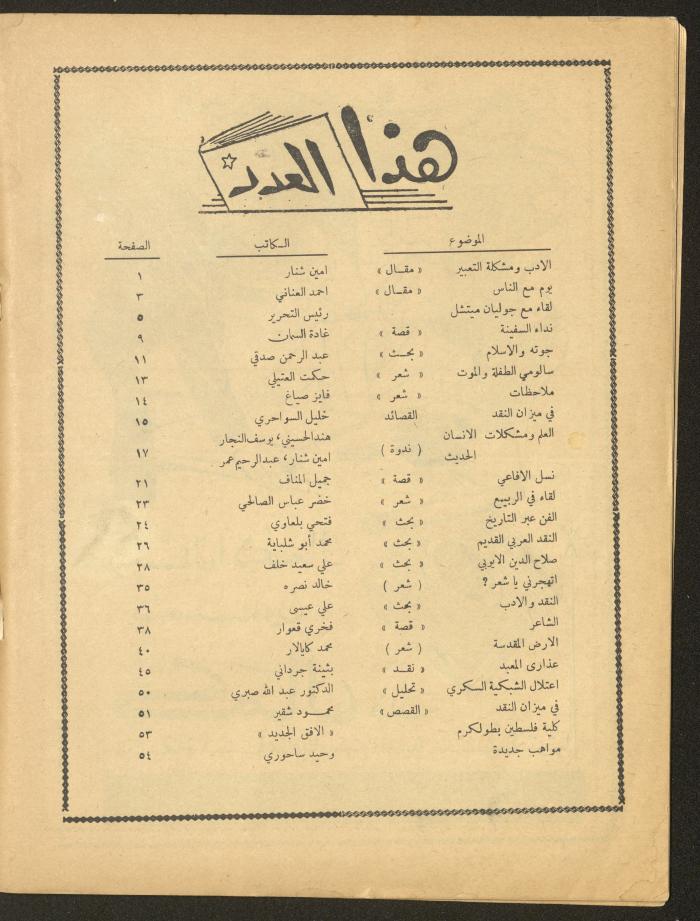 هذا العدد
الموضوع الكاتب الصفحة
الادب ومشكلة التعبير « مقال » امين شنار ١
يوم مع الناس « مقال » احمد العناني ٣
لقاء مع جوليان ميتشل رئيس التحرير ٥
نداء السفينة « قصة » غادة السمان ٩
جوته والاسلام « بحث » عبد الرحمن صدقي ١١
سالومي الطفلة والموت « شعر » حكمت العتيلي ١٣
ملاحظات « شعر » فايز صياغ ١٤
في ميزان النقد القصائد خليل السواحري ١٥
العلم ومشكلات الانسان هند الحسيني، يوسف النجار
الحديث ( ندوة ) امين شنار، عبد الرحيم عمر ١٧
نسل الافاعي « قصة » جميل المناف ٢١
لقاء في الربيع « شعر » خضر عباس الصالحي ٢٣
الفن عبر التاريخ « بحث » فتحي بلعاوي ٢٤
النقد العربي القديم « بحث » محمد أبو شلباية ٢٦
صلاح الدين الايوبي « بحث » علي سعيد خلف ٢٨
اتهجرني يا شعر ؟ ( شعر ) خالد نصره ٣٥
النقد والادب « بحث » علي عيسى ٣٦
الشاعر « قصة » فخري قعوار ٣٨
الارض المقدسة ( شعر ) محمد كايالار ٤٠
عذارى المعبد « نقد » بثينة جرداني ٤٥
اعتلال الشبكية السكري « تحليل » الدكتور عبد الله صبري ٥٠
في ميزان النقد « القصص » محمود شقير ٥١
كلية فلسطين بطولكرم « الافق الجديد » ٥٣
مواهب جديدة وحيد ساحوري ٥٤